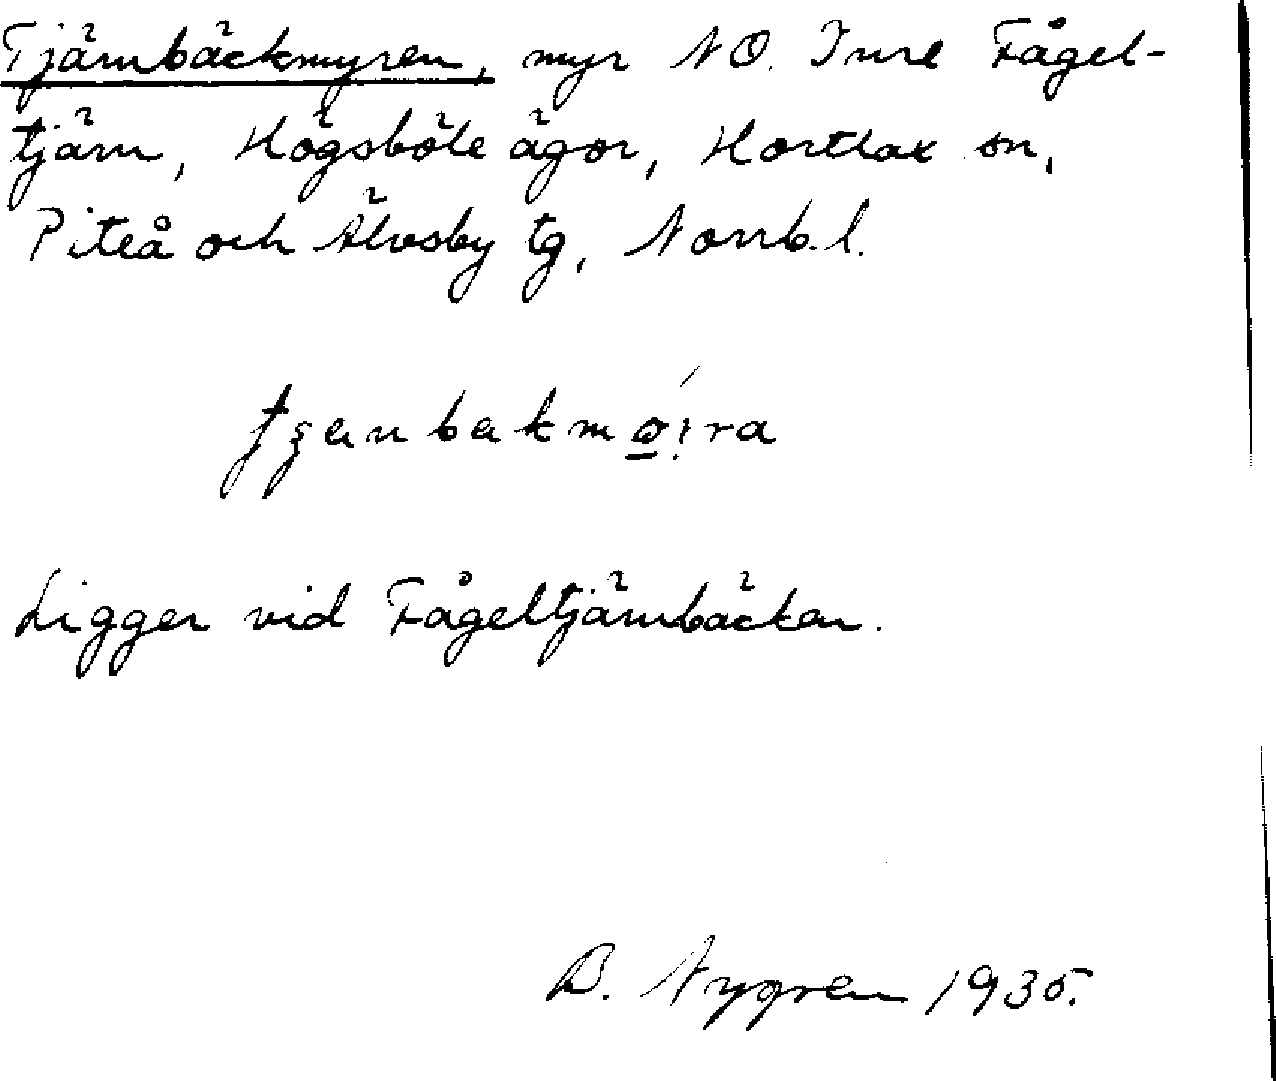 Tjärnbäckmyren, myr NO. Inre Fågel-
tjärn, Högsböle ägor, Hortlax sn,
Piteå och Älvsby tg, Norrb. l.
Ligger vid Fågeltjärnbäcken.
B. Nygren 1935.